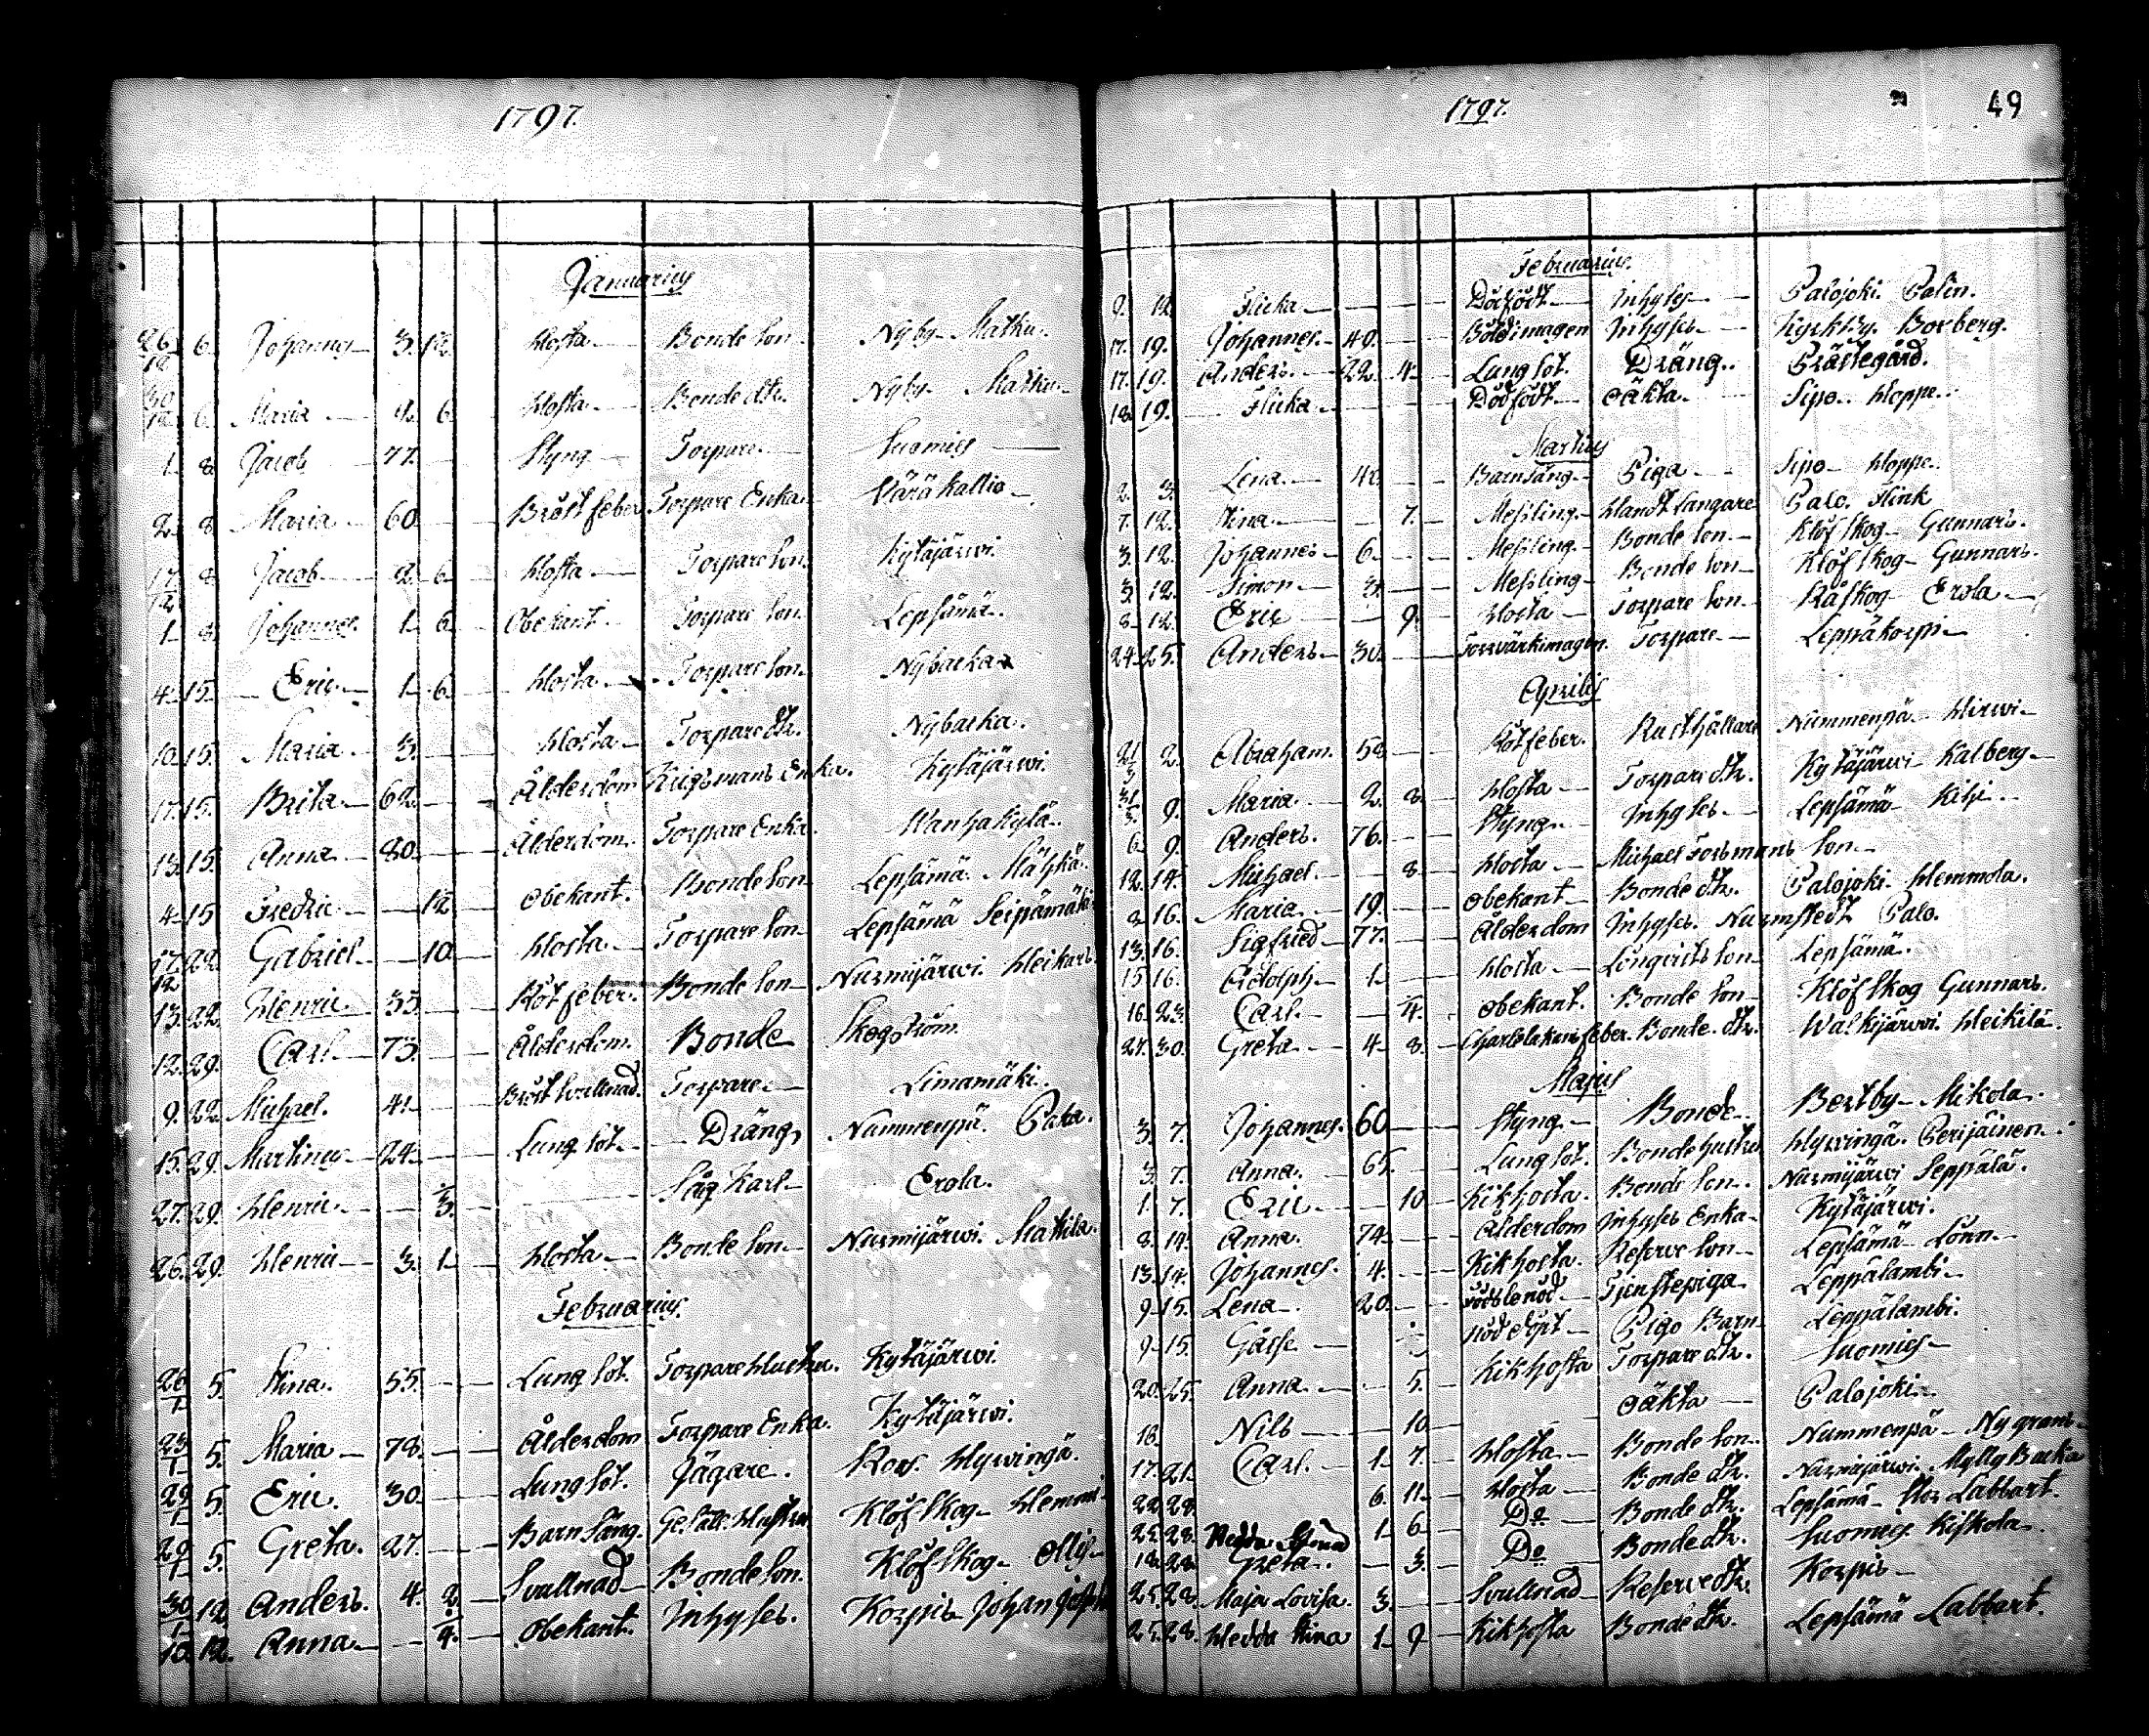 1797.
Januarius
26/12 6. Johannes 3. 12. Hosta Bonde Son Nyby Matku.
30/12 6. Maria 2. 6. Hosta Bonde dtr. Nyby Matku
1. 8. Jacob 77. Styng Torpare Suomies
2. 8. Maria 60. Bröst feber Torpare Enka Värä kallio
17/12 8. Jacob 2. 6. Hosta Torpare Son Kytäjärwi.
1. 8. Johannes 1. 6. Obekant Torpare Son. Lepsämä.
4. 15. Eric 1. 6. Hosta Torpare Son. Nybacka
10. 15. Maria 3. Hosta Torpare dtr. Nybacka.
17. 15. Brita 62. Ålderdom Krigsmans Enka. Kytäjärwi.
13. 15. Anna 80. Ålderdom. Torpare Enka. Wanhakylä.
4. 15. Fredric 12. Obekant. Bonde Son Lepsämä.
17/12 22. Gabriel 10. Hosta. Torpare Son Lepsämä Seipämäki
13. 22. Henric 35. Rötfeber. Bonde Son Nurmijärwi Heikars
12. 29. Carl 73. Ålderdom. Bonde Skogström.
9. 22. Michael. 41. Bröst Svullnad. Torpare Limamäki.
15. 29. Martinus 24. Lung Sot. Dräng, Nummenpä. Paka.
27. 29. Henric 3. Såg Karl Erola.
26. 29. Henric 3. 1. Hosta Bonde Son Nurmijärwi Mattila.
Februarius.
26/1 5. Stina. 55. Lung Sot. Torpare Hustru. Kytäjärwi.
23/1 5. Maria 78. Ålderdom Torpare Enka. Kytäjärwi.
29/1 5. Eric. 30. Lung Sot. Jägare. Hywingä.
29/1 5. Greta. 27. Barn Säng. Hustru Klöfskog
30/1 12. Anders. 4. 2. Svullnad Bonde Son. Klöfskog Ollis
10. 12. Anna 4. Obekant. Inhyses. Korpis Johan
1797. 49
Februarius.
9. 12. Flicka Dödfödt Inhyses Palojoki Palin.
17. 19. Johannes 49. Inhyses Kyrkby. Borberg.
17. 19. Anders 22. 4. Lung Sot. Dräng. Prästegård.
18. 19. Flicka Dödfödt Oäkta. Sipo. Hoppe.
Martius
2. 3. Lena 40. Barnsäng Piga Sipo Hoppe.
7. 12. Stina 7. Messling Palo. Flink
3. 12. Johannes 6. Messling Bonde Son Klöfskog Gunnars.
3. 12. Simon 3. Messling Bonde Son Klöfskog Gunnars.
8. 12. Eric 9. Hosta Torpare Son Råskog Erola
24. 25. Anders 30. Torrvärkimagen. Torpare Leppäkorpi
Aprilis
21/3 2. Abraham. 58. Rötfeber. Rusthållare Nummenpä Hirwi
31/3 9. Maria 2. 8. Hosta Torpare dtr. Kytäjärwi Kalberg
6. 9. Anders. 76. Styng. Inhyses Lepsämä
12. 14. Michael. 8. Hosta Michael Forsmans Son
8. 16. Maria. 19. Obekant Bonde dtr. Palojoki Hemmola.
13. 16. Sigfried 77. Ålderdom Inhyses. Nurmstedt Palo.
15. 16. Adolph 1. Hosta Lönqvists Son Lepsämä.
16. 23. Carl 4. Obekant. Bonde Son Klöfskog Gunnars.
27. 30. Greta 4. 8. Charlakansfeber. Bonde dtr. Walkjärwi Heikilä.
Majus
3. 7. Johannes. 60. Styng Bonde Bertby Mikola.
3. 7. Anna. 65. Lung Sot. Bonde hustru Hywingä. Perijäinen.
1. 7. Eric 10. Kikhosta. Bonde Son. Nurmijärwi Seppälä.
8. 14. Anna. 74. Ålderdom Inhyses Enka Kytäjärwi.
13. 14. Johannes. 4. Kikhosta. Reserve Son Lepsämä Lönn
9. 15. Lena 20. Födslenöd Tjenstepiga Leppälambi
9. 15. Gåsse Nöd döpt Piga Barn Leppälambi.
20. 25. Anna 5. Kikhosta Torpare dtr. Suomies
18. Nils 10. Oäkta Palojoki
17. 21. Carl. 1. 7. Hosta Bonde Son. Nummenpä Nygrans
22. 28. 6. 11. Hosta Bonde dtr. Nurmijärwi. Mylly Backa
25. 28. Hedda 1. 6. Do Bonde dtr. Lepsämä Stor Labbart.
18. 28. Greta. 3. Do Bonde dtr. Suomies Kiskola.
25. 28. Maja Lovisa. 3. Svullnad Reserve dtr. Korpis
25. 28. Hedda Stina 1. 9. Kikhosta Bonde dtr. Lepsämä Labbart.